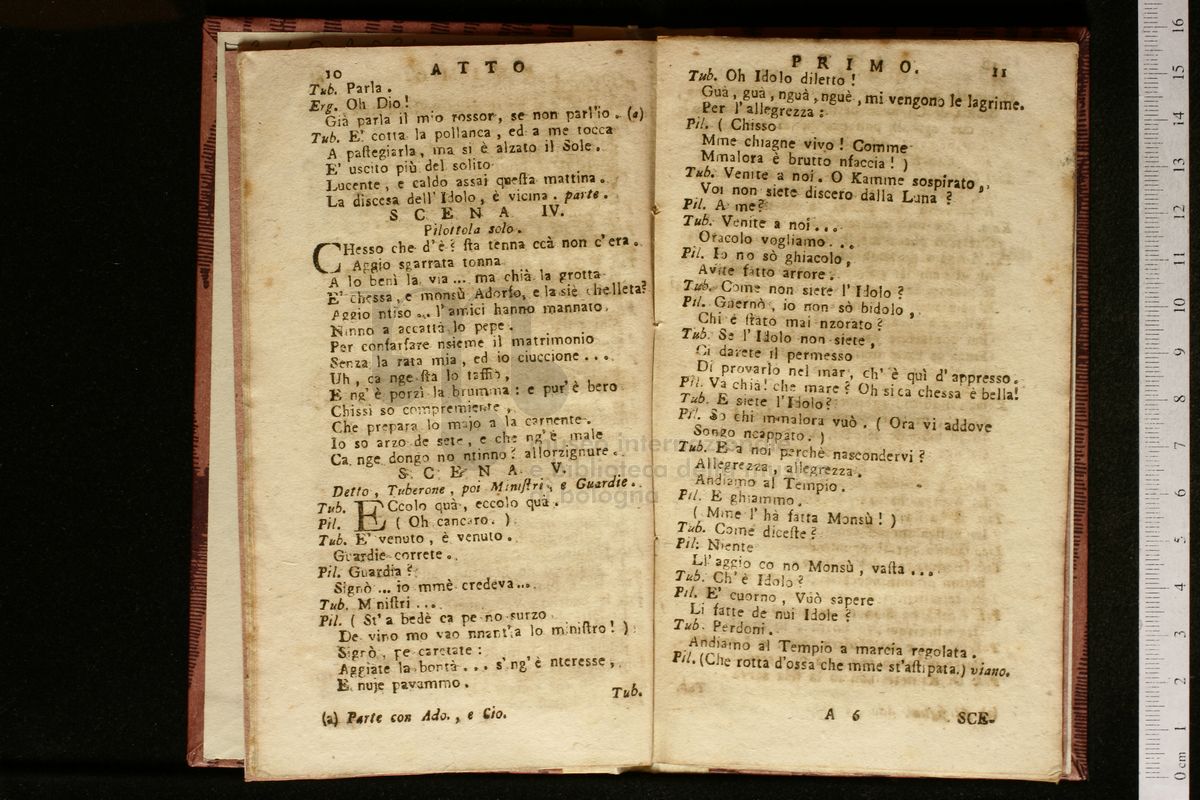 10 ATTO
Tub. Parla.
Erg. Oh Dio!
Già parla il mio rossor, se non parl'io. (a)
Tub. E' cotta la pollanca, ed a me tocca
A pasteggiarla, ma si è alzato il Sole.
E' uscito più del solito
Lucente, e caldo assai questa mattina.
La discesa dell' Idolo, è vicina. parte.
SCENA IV.
Pilottola solo.
CHesso che d'è? sta tenna ccà non c'era.
Aggio sgarrata tonna
A lo beni la via ... ma chià la grotta
E' chessa, e monsù Adorfo, e la siè chelleta?
Aggio ntiso ... l'amici hanno mannato,
Ninno a accattà lo pepe.
Per confarfare nsieme il matrimonio
Senza la rata mia, ed io ciuccione ....
Uh, ca nge sta lo taffio,
E ng' è porzì la brumma: e pur' è bero
Chissi so compremiente,
Che prepara lo majo a la carnente.
Io so arzo de sete, e che ng' è male
Ca nge dongo no ntinno? allorzignure.
SCENA V.
Detto, Tuberone, poi Ministri, e Guardie.
Tub. ECcolo quà, eccolo quà.
Pil. ( Oh cancaro. )
Tub. E' venuto, è venuto.
Guardie correte.
Pil. Guardia?
Signò ... io mmè credeva ...
Tub. Ministri ...
Pil. ( St' a bedè ca pe no surzo
De vino mo vao nnant'a lo ministro! )
Signò, pe caretate:
Aggiate la bontà ... s' ng' è nteresse,
E nuje pavammo.
Tub.
(a) Parte con Ado., e Cio.
PRIMO. 11
Tub. Oh Idolo diletto!
Guà, guà, nguà, nguè, mi vengono le lagrime.
Per l'allegrezza:
Pil. ( Chisso
Mme chiagne vivo! Comme
Mmalora è brutto nfaccia! )
Tub. Venite a noi. O Kamme sospirato,
Voi non siete discero dalla Luna?
Pil. A me?
Tub. Venite a noi...
Oracolo vogliamo...
Pil. Io no sò ghiacolo,
Avite fatto arrore.
Tub. Come non siete l'Idolo?
Pil. Gnernò, io non sò bidolo,
Chi è stato mai nzorato?
Tub. Se l'Idolo non siete,
Ci darete il permesso
Di provarlo nel mar, ch' è quì d'appresso.
Pil. Va chià! che mare? Oh si ca chessa è bella!
Tub. E siete l'Idolo?
Pil. So chi mmalora vuò. ( Ora vi addove
Songo ncappato. )
Tub. E a noi perchè nascondervi?
Allegrezza, allegrezza.
Andiamo al Tempio.
Pil. E ghiammo.
( Mme l' hà fatta Monsù! )
Tub. Come diceste?
Pil: Niente
Ll' aggio co no Monsù, vasta ...
Tub. Ch' è Idolo?
Pil. E' cuorno, Vuò sapere
Li fatte de nui Idole?
Tub. Perdoni.
Andiamo al Tempio a marcia regolata.
Pil. (Che rotta d'ossa che mme st'astipata.) viano.
A 6 SCE-
museo internazionale
e biblioteca della
di bologna
16
15
14
13
12
11
10
9
8
7
6
5
4
3
2
1
0 cm